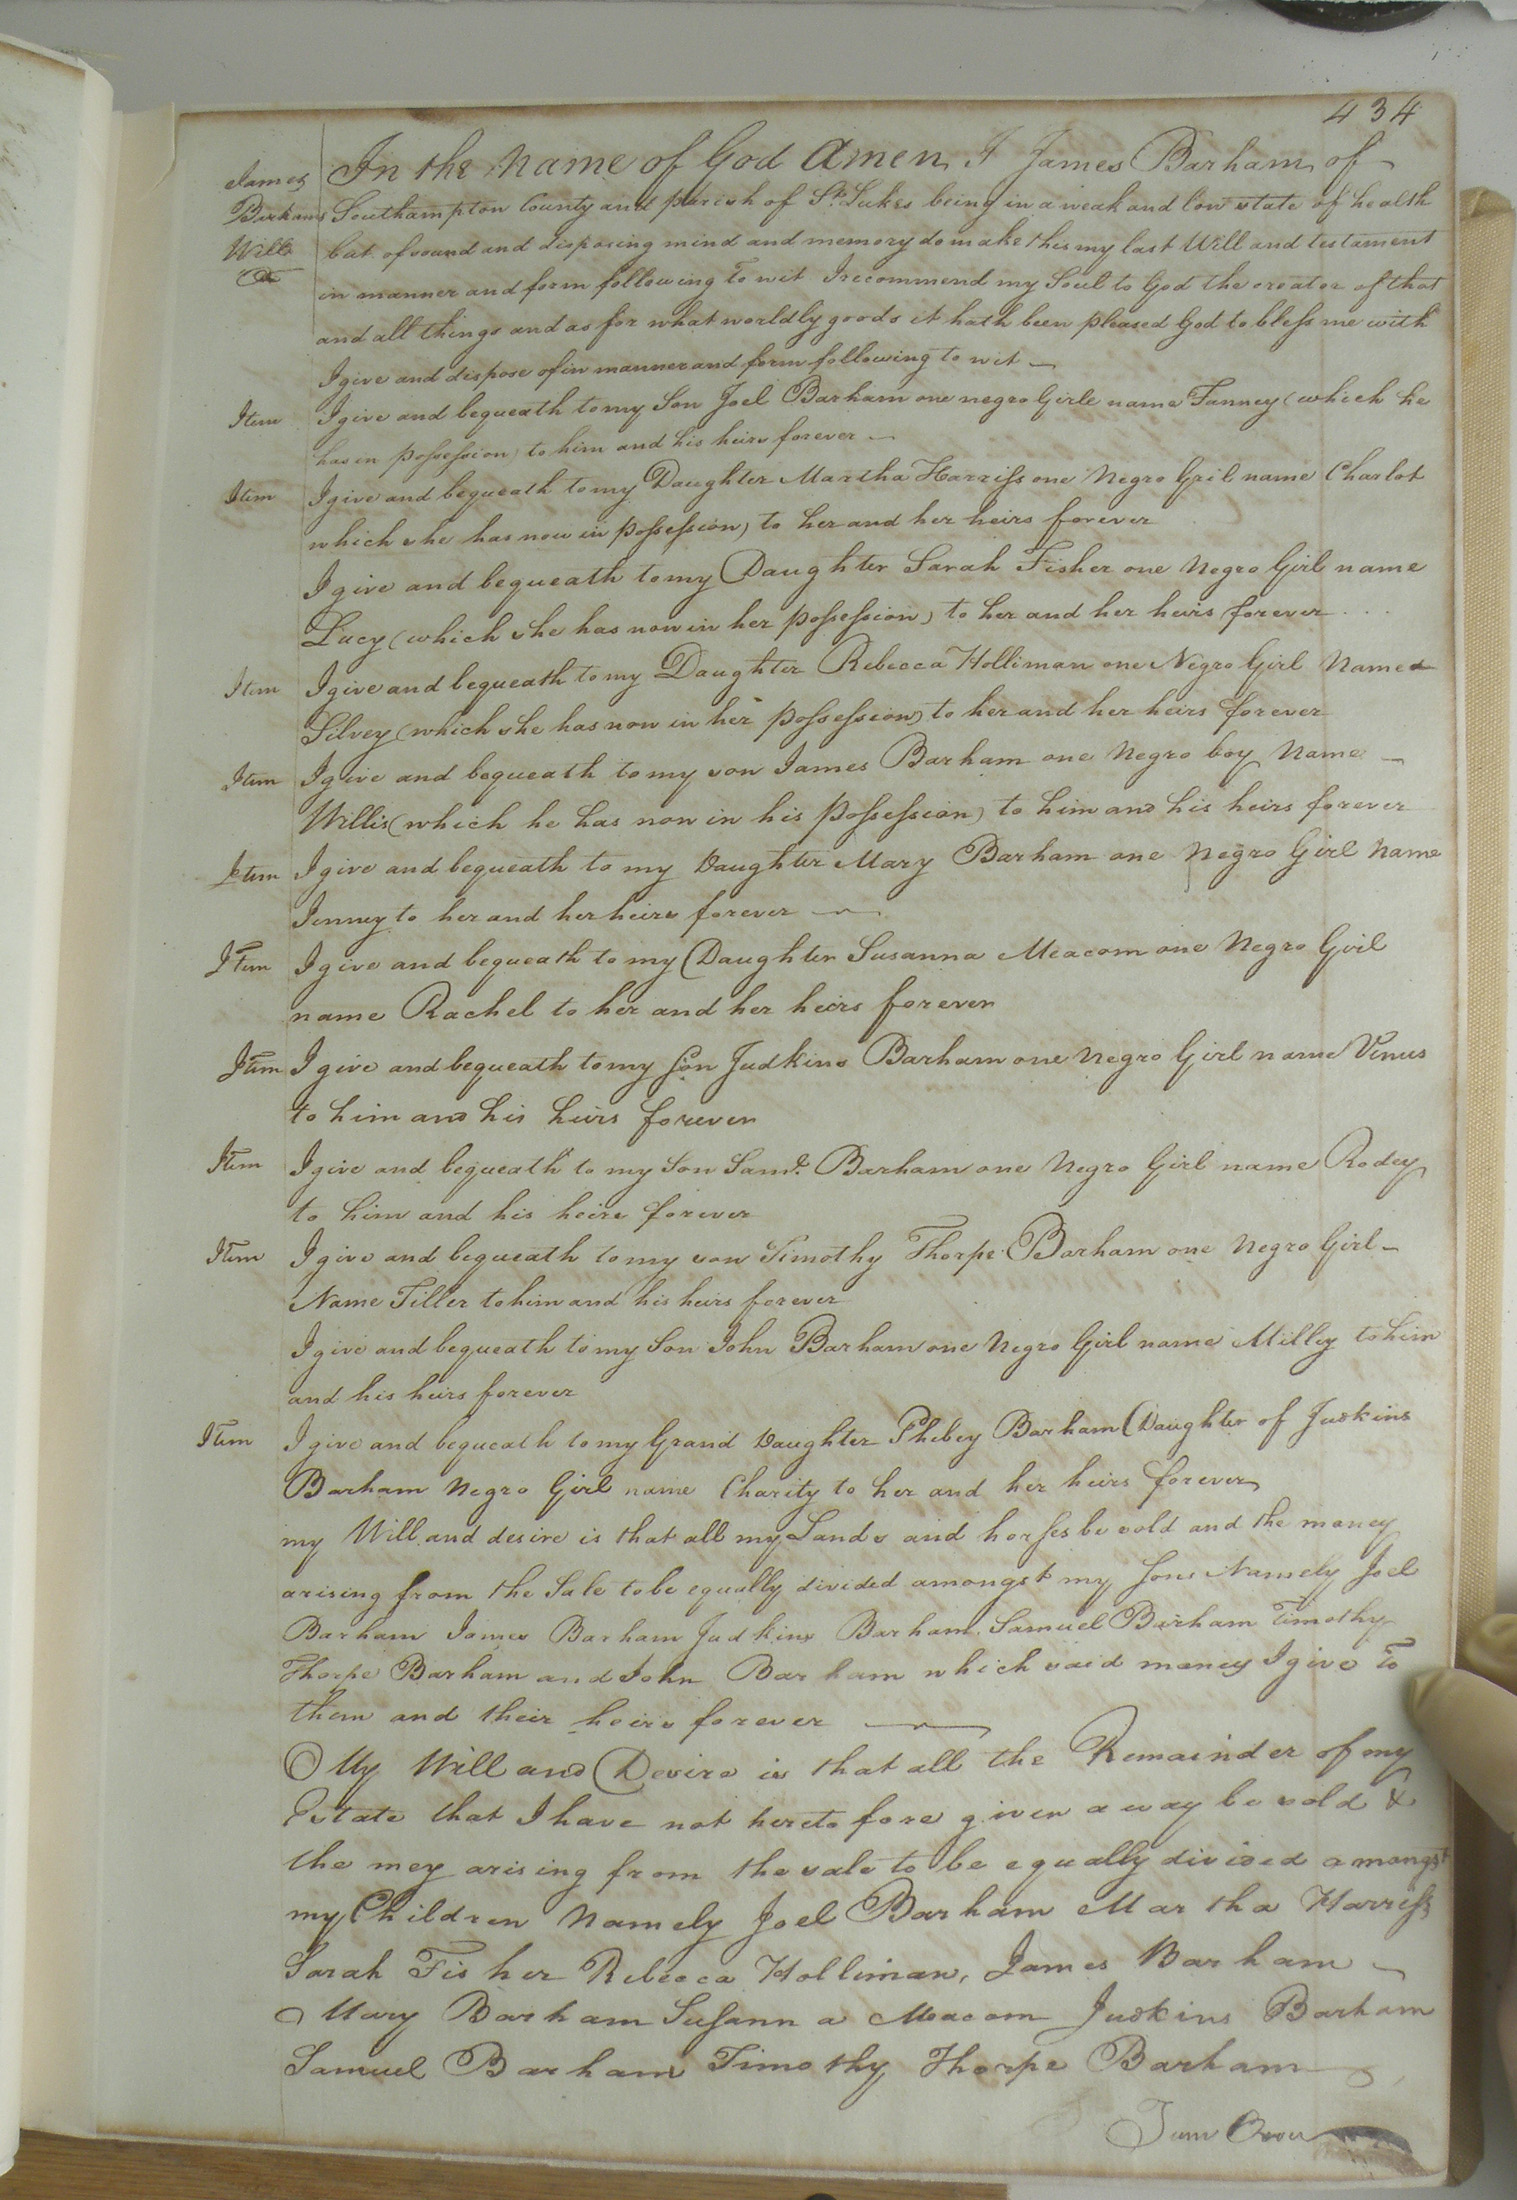 434
James
Barhams
Will
In the Name of God Amen I James Barham of
Southampton County and parish of St. Lukes being in a weak and low state of health
but of sound and disposing mind and memory do make this my last Will and testament
in manner and form following To wit I recommend my Soul to God the creator of that
and all things and as for what worldly goods it hath been pleased God to bless me with
I give and dispose of in manner and form following to wit
Item I give and bequeath to my Son Joel Barham one negro Girle name Fanney (which he
has in possession) to him and his heirs forever
Item I give and bequeath to my Daughter Martha Harriss one Negro Gril name Charlot
which she has now in possession) to her and her heirs forever
I give and bequeath to my Daughter Sarah Fisher one Negro Girl name
Lucy (which she has now in her possession) to her and her heirs forever
Item I give and bequeath to my Daughter Rebecca Holliman one Negro Girl Named
Silvey (which she has now in her possession) to her and her heirs forever
Item I give and bequeath to my son James Barham one Negro boy Name
Willis (which he has now in his possession) to him and his heirs forever
Item I give and bequeath to my Daughter Mary Barham one Negro Girl Name
Jenney to her and her heirs forever
Item I give and bequeath to my Daughter Susanna Meacom one Negro Gril
name Rachel to her and her heirs forever
Item I give and bequeath to my Son Judkins Barham one Negro Girl name Venus
to him and his heirs forever
Item I give and bequeath to my Son Saml. Barham one Negro Girl name Rodey
to him and his heirs forever
Item I give and bequeath to my son Timothy Thorpe Barham one Negro Girl
Name Tiller to him and his heirs forever
I give and bequeath to my Son John Barham one Negro Girl name Milley to him
and his heirs forever
Item I give and bequeath to my Grand Daughter Phebey Barham (Daughter of Judkins
Barham Negro Girl name Charity to her and her heirs forever
my Will and desire is that all my Lands and horses be sold and the money
arising from the Sale to be equally divided amongst my Sons Namely Joel
Barham James Barham Judkins Barham Samuel Barham Timothy
Thorpe Barham and John Barham which said money I give To
them and their heirs forever
My Will and Desire is that all the Remainder of my
Estate that I have not hereto fore given away be sold &
the mey arising from the sale to be equally divided amongst
my Children Namely Joel Barham Martha Harriss
Sarah Fisher Rebecca Holliman, James Barham
Mary Barham Susanna Meacom Judkins Barham
Samuel Barham Timothy Thorpe Barham
Turn Over